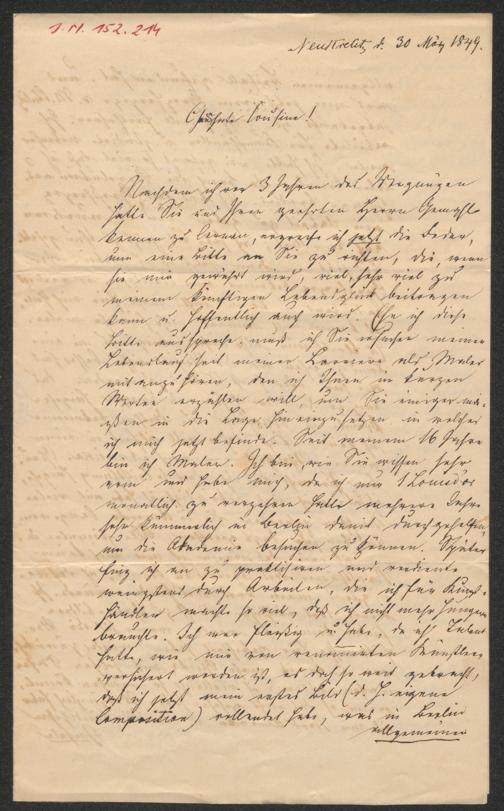 I.N. 152.214
Neustrelitz d. 30 März 1849.
Geehrte Cousine!
Nachdem ich vor 3 Jahren das Vergnügen
hatte Sie und Ihren geehrten Herrn Gemahl
kennen zu lernen, ergreife ich jetzt die Feder,
um eine Bitte an Sie zu richten, die, wenn
sie mir gewährt wird, viel, sehr viel zu
meinem künftigen Lebensglück beitragen
kann u. hoffentlich auch wird. Ehe ich diese
Bitte ausspreche muß ich Sie ersuchen meinen
Lebenslauf seit meiner Carriere als Maler
mitanzuhören, den ich Ihnen in kurzen
Worten erzählen will, um Sie einigerma-
ßen in die Lage hineinzusetzen in welcher
ich mich jetzt befinde. Seit meinem 16 Jahre
bin ich Maler. Ich bin, wie Sie wissen sehr
arm und habe mich, da ich nur 1 Louisdor
monatlich zu verzehren hatte mehrere Jahre
sehr kümmerlich in Berlin damit durchgeholfen,
um die Akademie besuchen zu können. Später
fing ich an zu praktisiren und verdiente
wenigstens durch Arbeiten, die ich für Kunst-
händler machte so viel, daß ich nicht mehr hungern
brauchte. Ich war fleißig u. habe, da ich Talent
hatte, wie mir von renommirten Künstlern
versichert worden ist, es doch so weit gebracht,
daß ich jetzt mein erstes Bild (d. h. eigene
Composition) vollendet habe, was in Berlin
allgemeinen